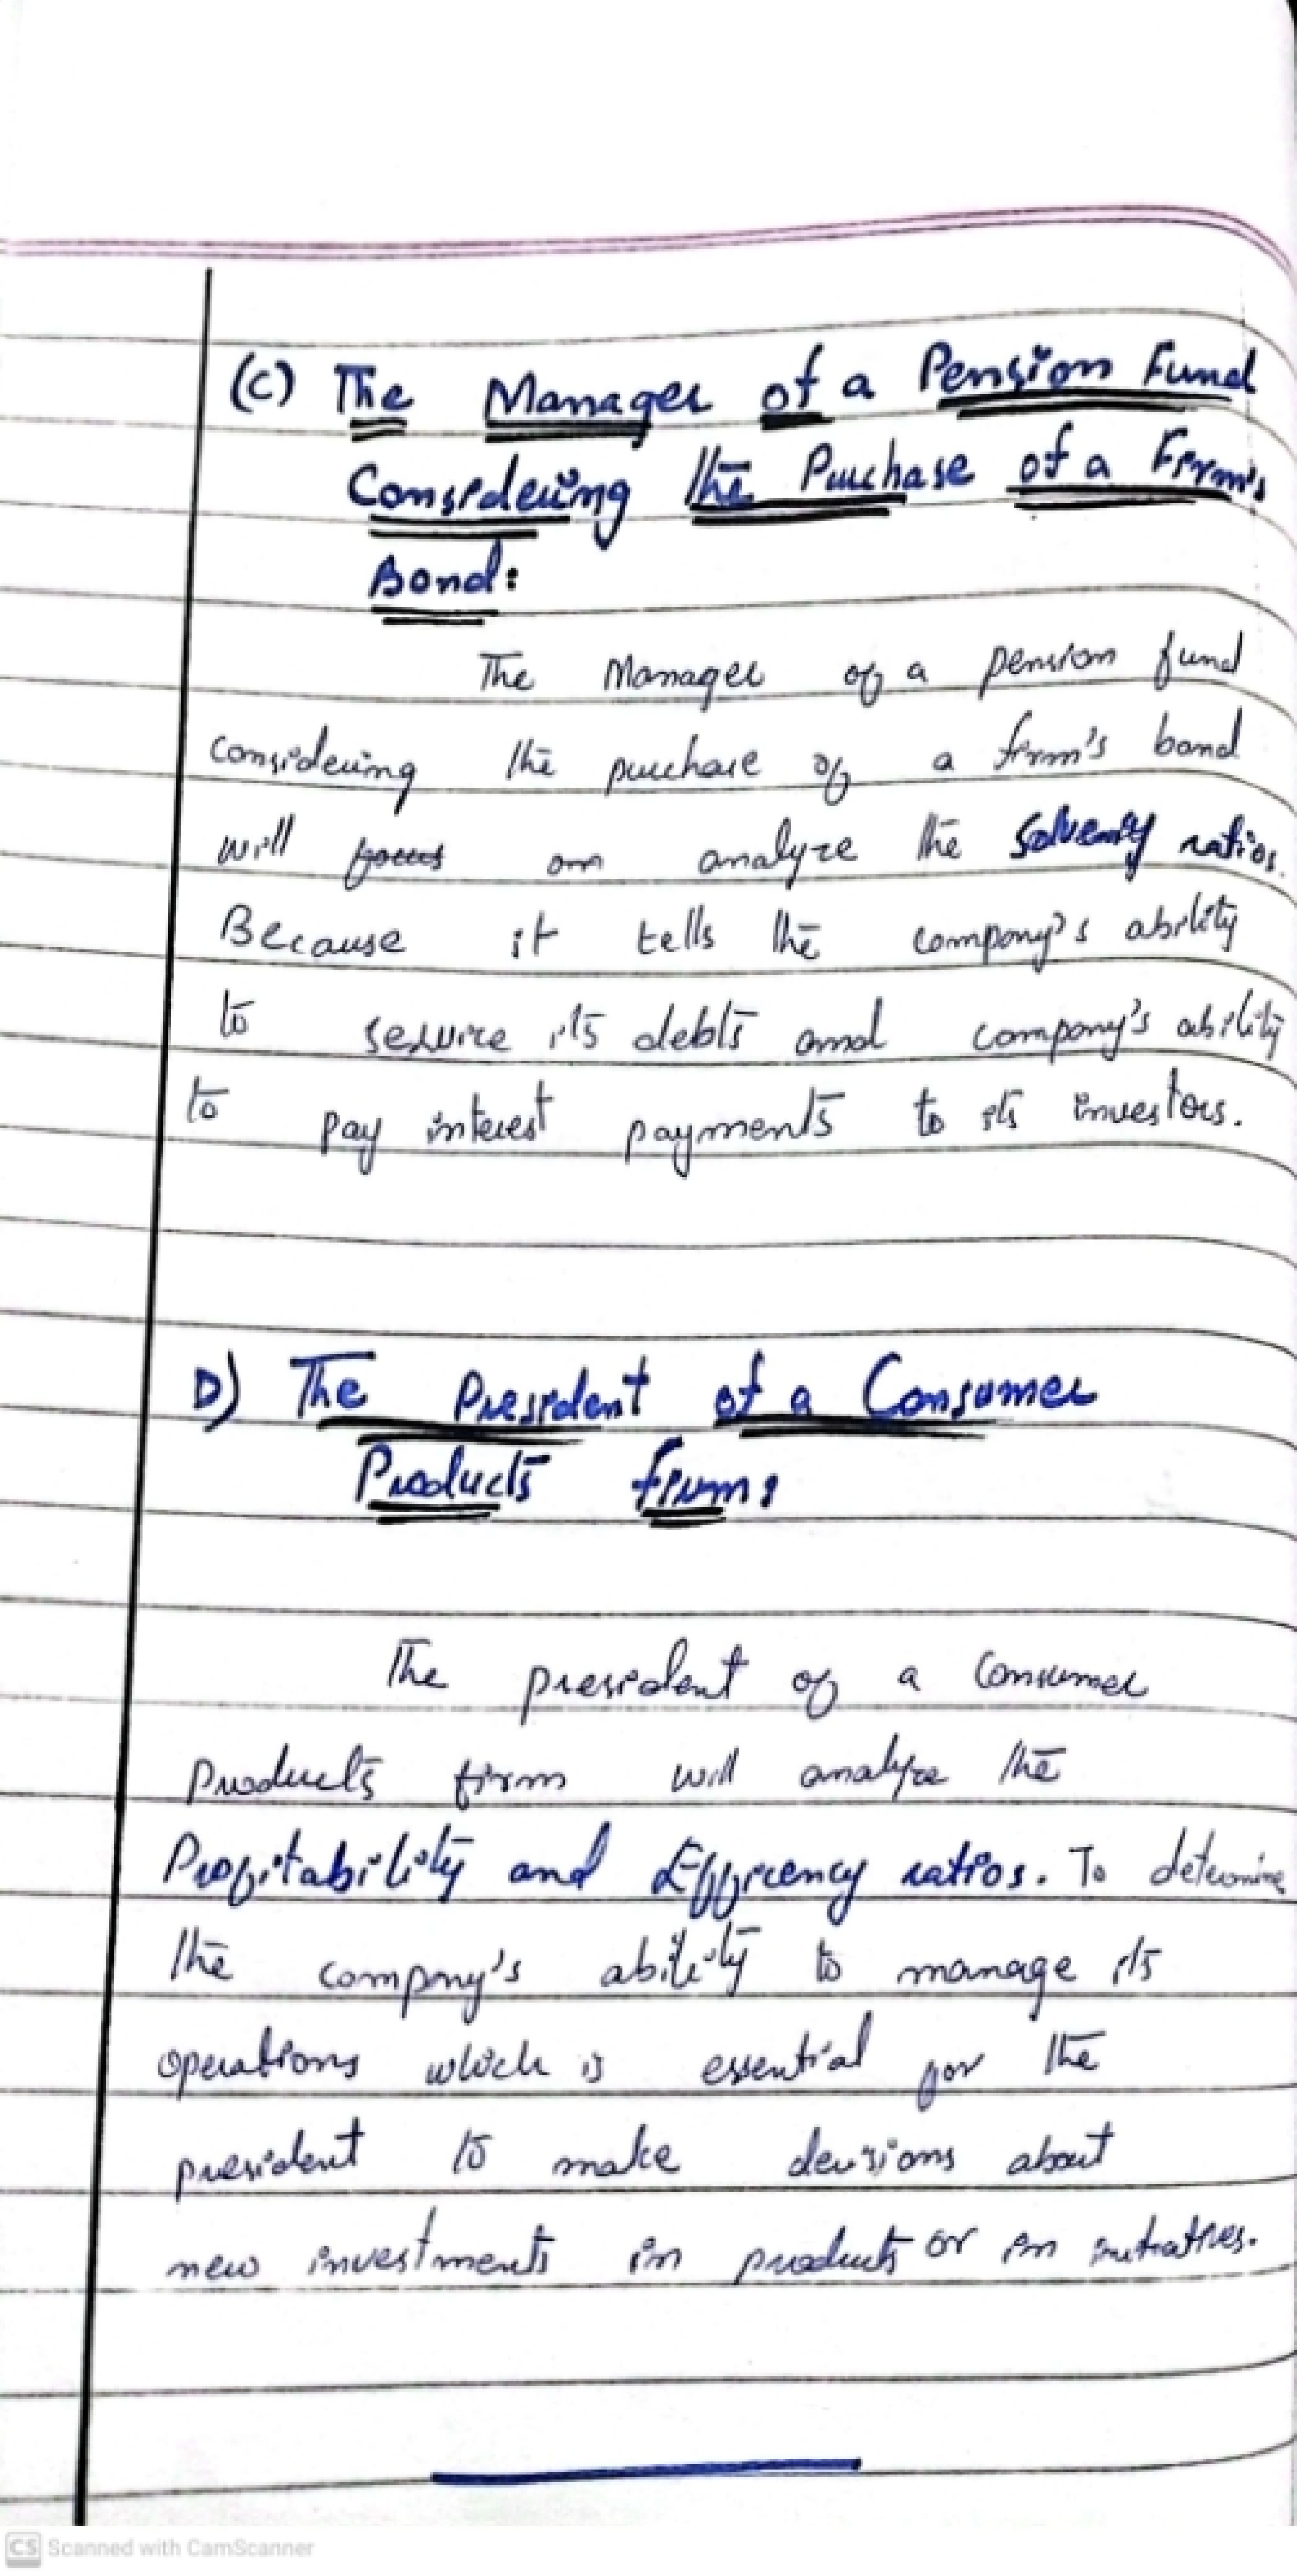 (C) The Manager of a Pension Fund
Considering the Purchase of a Firm's
Bond:
The Manager of a pension fund
considering the purchase of a firm's bond
will focus on analyze the Solvency ratios.
Because it tells the company's ability
to service its debts and company's ability
to pay interest payments to its investors.
D) The President of a Consumer
Products firm:
The president of a Consumer
Products firm will analyze the
Profitability and Efficiency ratios. To determine
the company's ability to manage its
operations which is essential for the
president to make decisions about
new investments in products or in initiatives.
CS Scanned with CamScanner